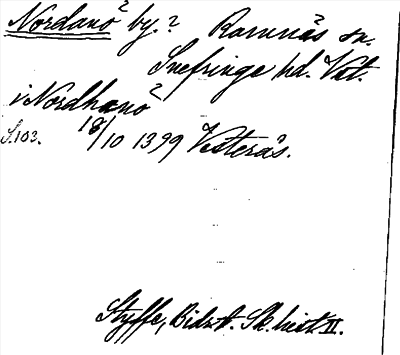 Nordanö by.? Ramnäs sn.
Snefringe hd. Väst.
i Nordhanö
S.103. 18/10 1399 Vesterås.
Styffe, Bidr. t. Sk. hist. II.